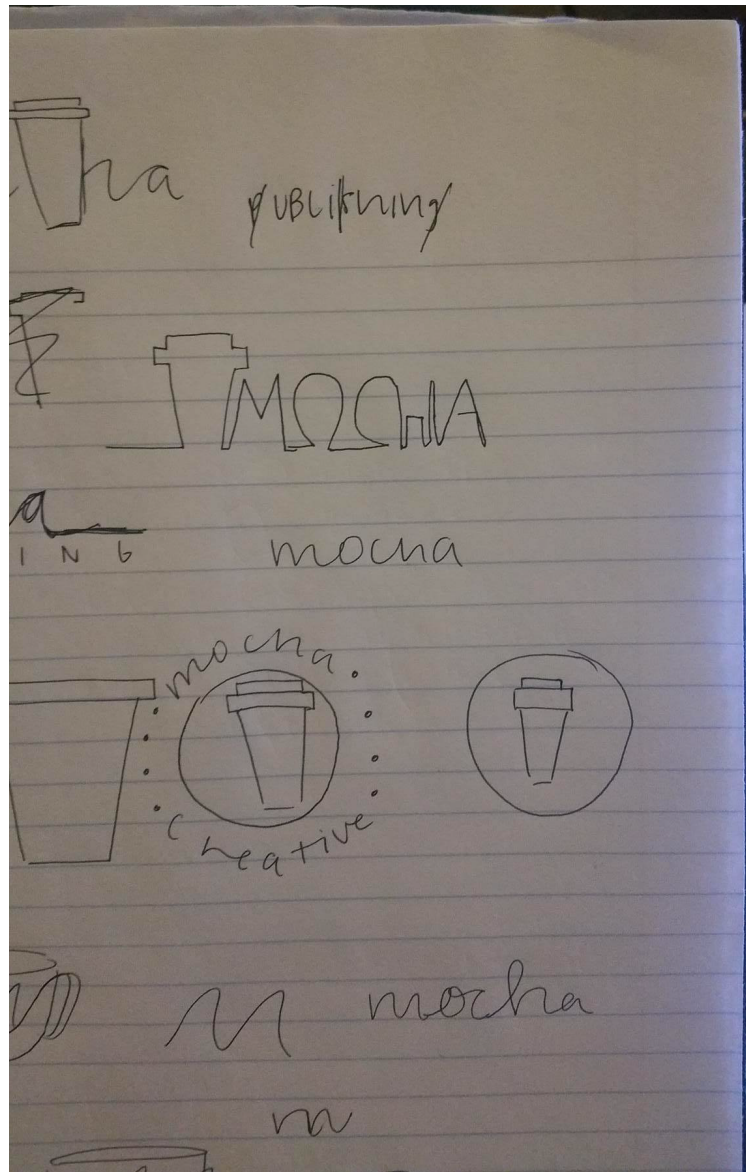 ha
publishing
MOCHA
a
ING
mocha
mocha
creative
M mocha
m